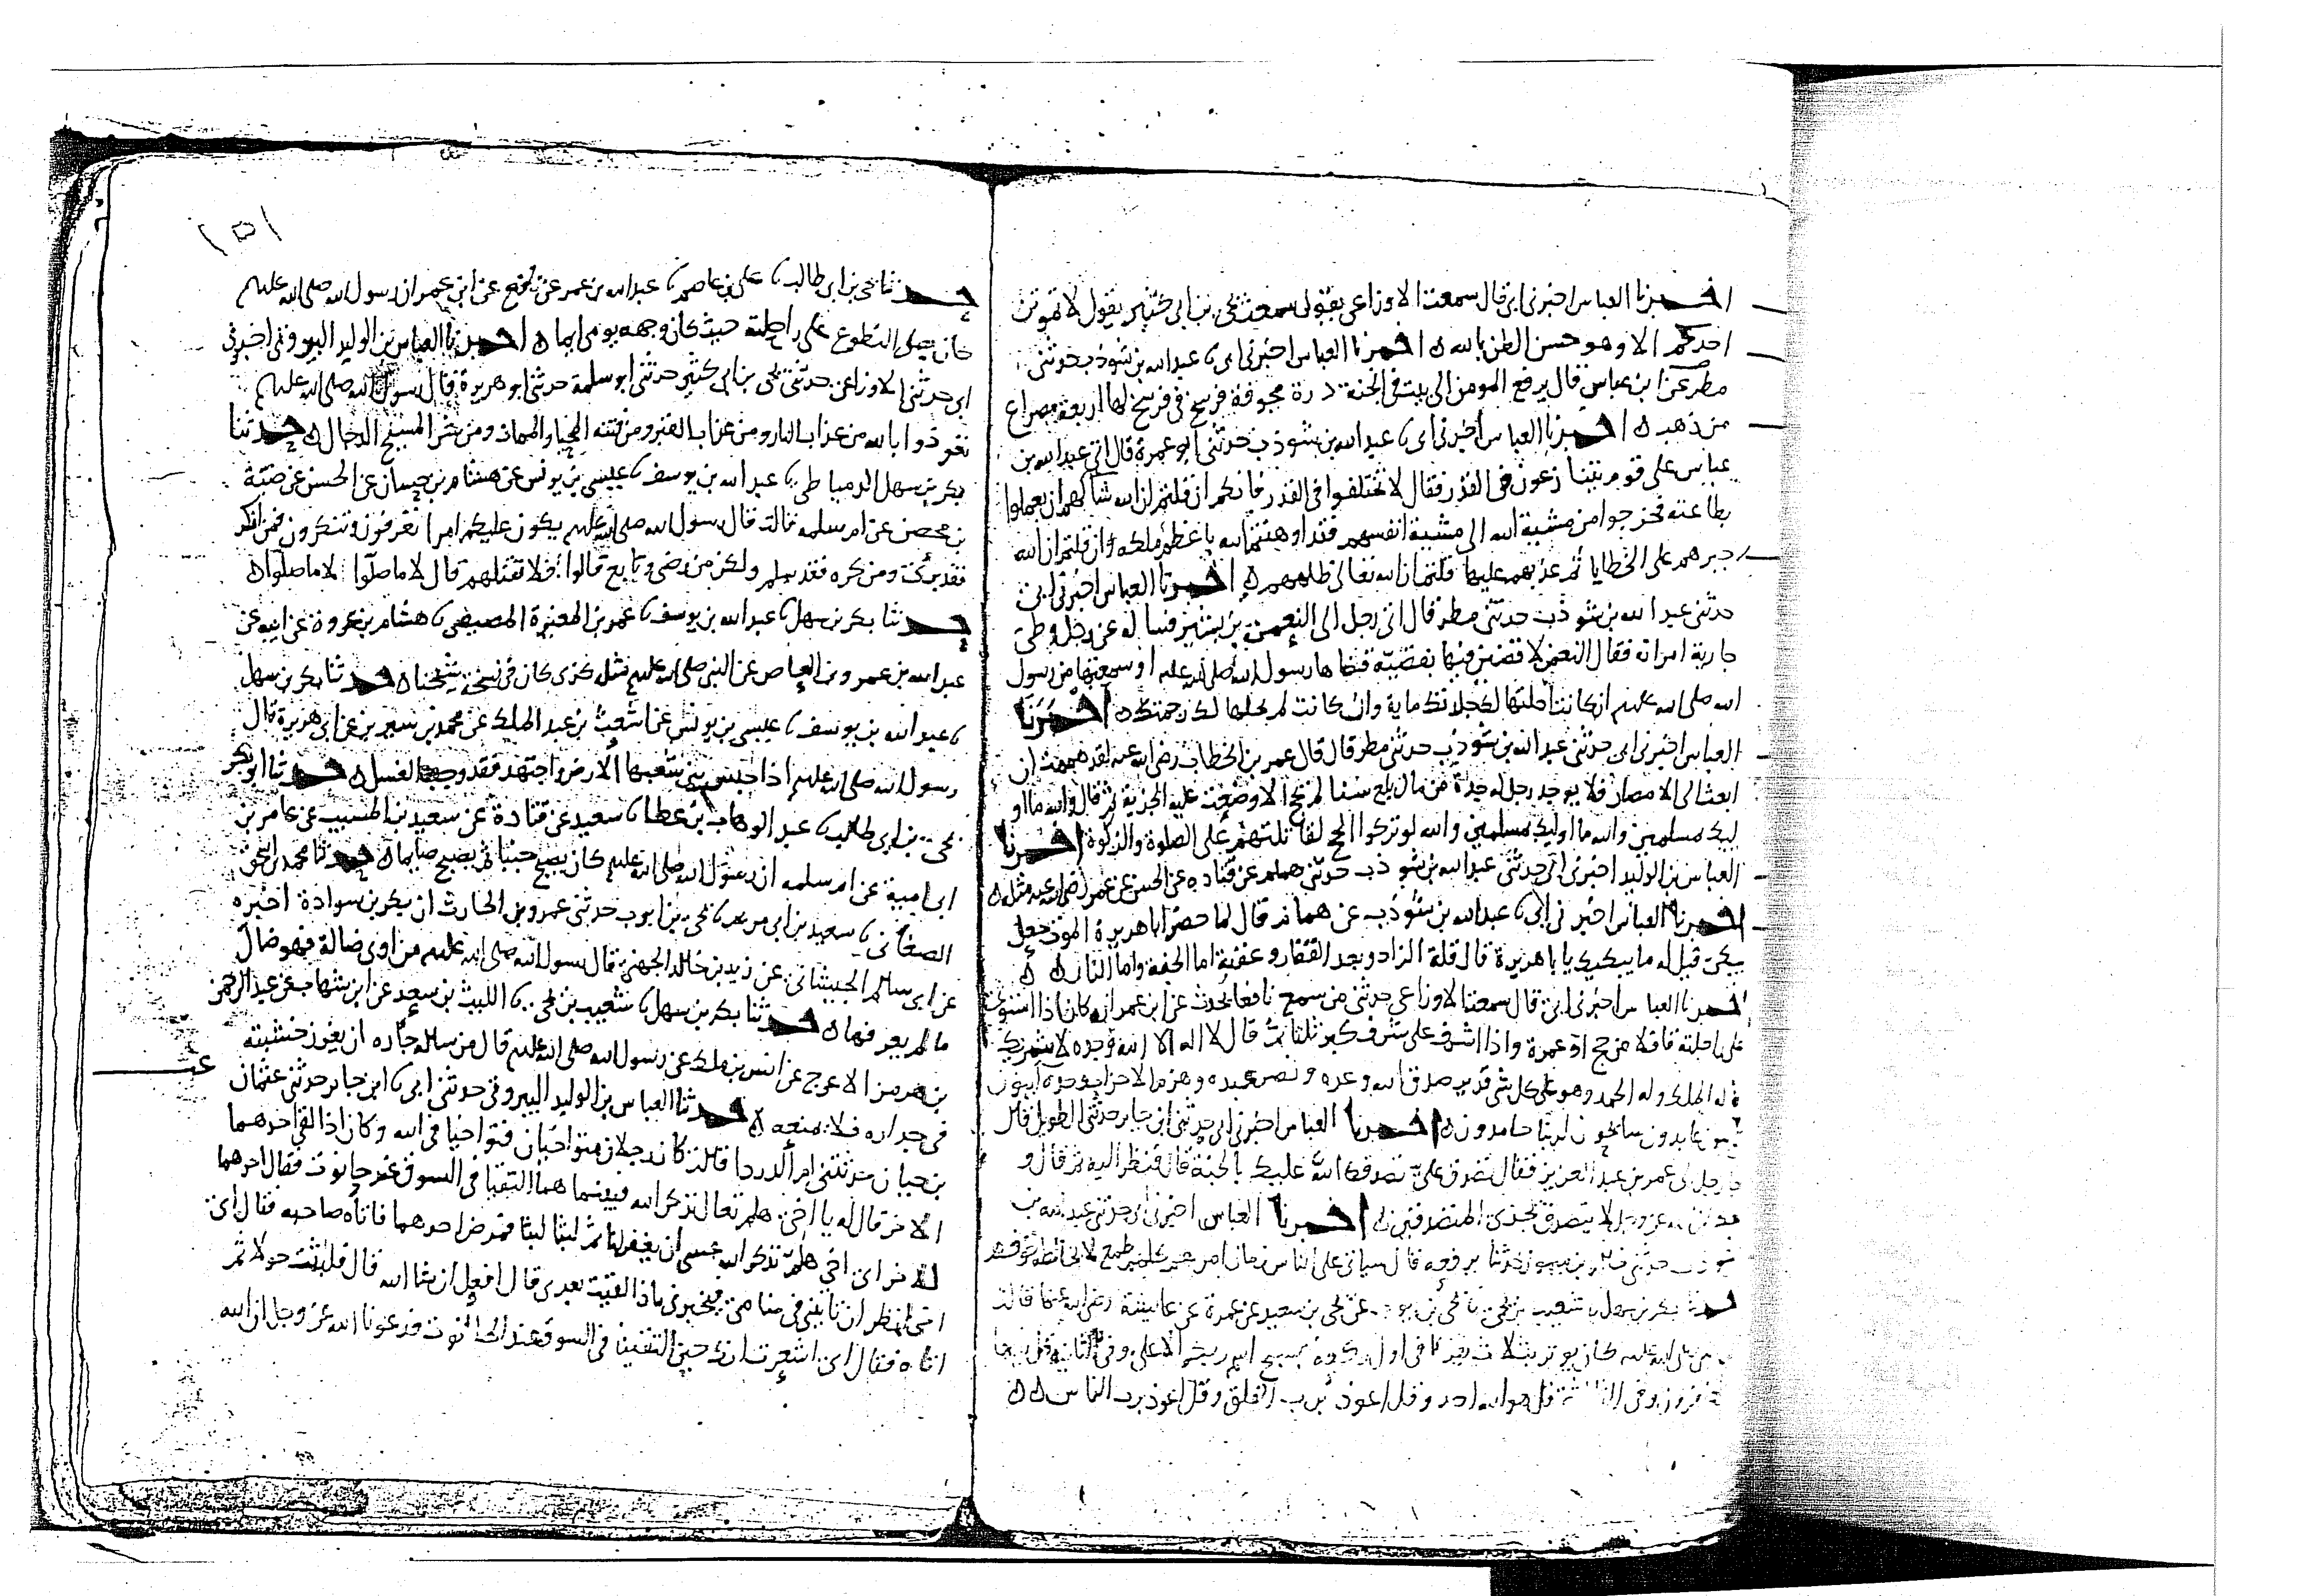 اخبرنا العباس اخبرني ابي قال سمعت الاوزاعي يقول سمعت يحيى بن ابي كثير يقول لا يموتن
احدكم الا وهو حسن الظن بالله ه اخبرنا العباس اخبرني ابي نا عبد الله بن شوذب حدثني
مطر عن ابن عباس قال يرفع المومن الى بيت في الجنة درة مجوفة فرسخ في فرسخ لها اربعة مصراع
من ذهب ه اخبرنا العباس اخبرني ابي نا عبد الله بن شوذب حدثني ابو عمرة قال اتى عبد الله بن
عباس على قوم يتنازعون في القدر فقال لا تختلفوا في القدر فانكم ان قلتم ان الله شا لهم ان يعملوا
بطاعته فخرجوا من مشية الله الى مشية انفسهم فقد اوهنتم الله باعظم ملكه وان قلتم ان الله
جبرهم على الخطايا ثم عذبهم عليها قلتم ان الله تعالى ظلمهم ه اخبرنا العباس اخبرني ابي
حدثني عبد الله بن شوذب حدثني مطر قال اتى رجل الى النعمن بن بشير فساله عن رجل وطي
جارية امراته فقال النعمن لاقضين فيها بقضية قضاها رسول الله صلى الله عليه او سمعتها من رسول
الله صلى الله عليه ان كانت احلتها لك جلدتك ماية وان كانت لم تحلها لك رجمتك ه اخبرنا
العباس اخبرني ابي حدثني عبد الله بن شوذب حدثني مطر قال قال عمر بن الخطاب رضي الله عنه لقد هممت ان
ابعث الى الامصار فلا يوجد رجل له جدة من مال بلغ سنا لم يحج الا وضعت عليه الجزية ثم قال والله ما او
ليك مسلمين والله ما اوليك مسلمين والله لو تركوا الحج لقاتلتهم على الصلوة والزكوة اخبرنا
العباس بن الوليد اخبرني ابي حدثني عبد الله بن شوذب حدثني همام عن قتاده عن الحسن عن عمر رضي الله عنه مثله ه
اخبرنا العباس اخبرني ابي نا عبد الله بن شوذب عن همام قال لما حضر ابا هريرة الموت جعل
يبكي قيل له ما يبكيك يا با هريرة قال قلة الزاد وبعد القفار وعقبة اما الجنة واما النار ه ه
اخبرنا العباس اخبرني ابي قال سمعت الاوزاعي حدثني من سمع نافعا يحدث عن ابن عمر انه كان اذا استوى
على راحلته قافلا من حج او عمرة واذا اشرف على شرف كبر ثلاثا ثم قال لا اله الا الله وحده لا شريك
له له الملك وله الحمد وهو على كل شي قدير صدق الله وعده ونصر عبده وهزم الاحزاب وحده آيبون
عابدون سايحون لربنا حامدون ه اخبرنا العباس اخبرني ابي حدثني ابن جابر حدثني الطويل قال
جا رجل الى عمر بن عبد العزيز فقال تصدق علي تصدق الله عليك بالجنة قال فنظر اليه ثم قال و
ان الله عز وجل لا يتصدق يجزي المتصدقين ه اخبرنا العباس اخبرني ابي حدثني عبد الله بن
شوذب حدثني بن ميمون حدثنا يرفعه قال سياتي على الناس زمان
حدثنا بكر بن سهل نا شعيب بن يحيى نا يحيى بن ايوب عن يحيى بن سعيد عن عمرة عن عايشة رضي الله عنها قالت
صلى الله عليه كان يوتر بثلاث يقرا في اول ركعة بسبح اسم ربك الاعلى وفي الثانية قل يايها
الكافرون وفي الثالثة قل هو الله احد وقل اعوذ برب الفلق وقل اعوذ برب الناس ه ه
١٥١
حدثنا يحيى بن ابي طالب نا علي بن عاصم نا عبد الله بن عمر عن نافع عن ابن عمر ان رسول الله صلى الله عليه
كان يصلي التطوع على راحلته حيث كان وجهه يومي ايما ه اخبرنا العباس بن الوليد البيروتي اخبرني
ابي حدثني الاوزاعي حدثني يحيى بن ابي كثير حدثني ابو سلمة حدثني ابو هريرة قال رسول الله صلى الله عليه
تعوذوا بالله من عذاب النار ومن عذاب القبر ومن فتنة المحيا والممات ومن شر المسيح الدجال ه حدثنا
بكر بن سهل الدمياطي نا عبد الله بن يوسف نا عيسى بن يونس عن هشام بن حسان عن الحسن عن ضبة
بن محصن عن ام سلمه قالت قال رسول الله صلى الله عليه يكون عليكم امرا تعرفون وتنكرون فمن انكر
فقد بري ومن كره فقد سلم ولكن من رضي وتابع قالوا افلا نقتلهم قال لا ما صلوا لا ما صلوا ه
حدثنا بكر بن سهل نا عبد الله بن يوسف نا عمر بن المغيرة المصيصي نا هشام بن عروة عن ابيه عن
عبد الله بن عمرو بن العاص عن النبي صلى الله عليه مثله كذى كان في نسخة شيخنا ه حدثنا بكر بن سهل
نا عبد الله بن يوسف نا عيسى بن يونس عن اشعث بن عبد الملك عن محمد بن سيرين عن ابي هريرة قال
رسول الله صلى الله عليه اذا جلس بين شعبها الاربع واجتهد فقد وجب الغسل ه حدثنا ابو بكر
يحيى بن ابي طالب نا عبد الوهاب بن عطا نا سعيد عن قتادة عن سعيد بن المسيب عن عامر بن
ابي امية عن ام سلمه ان رسول الله صلى الله عليه كان يصبح جنبا ثم يصبح صايما ه حدثنا محمد بن اسحق
الصغاني نا سعيد بن ابي مريم نا يحيى بن ايوب حدثني عمرو بن الحارث ان بكر بن سوادة اخبره
عن ابي سالم الجيشاني عن زيد بن خالد الجهني قال رسول الله صلى الله عليه من اوى ضالة فهو ضال
ما لم يعرفها ه حدثنا بكر بن سهل نا شعيب بن يحيى نا الليث بن سعد عن ابن شهاب عن عبد الرحمن
بن هرمز الاعرج عن انس بن ملك عن رسول الله صلى الله عليه قال من ساله جاره ان يغرز خشبته
في جداره فلا يمنعه ه حدثنا العباس بن الوليد البيروتي حدثني ابي نا ابن جابر حدثني عثمان
بن حيان حدثتني ام الدردا قالت كان رجلان متواخيان فتواخيا في الله وكان اذا لقي احدهما
الاخر قال له يا اخي هلم تعال نذكر الله فبينما هما التقيا في السوق عند حانوت فقال احدهما
للاخر اي اخي هلم نذكر الله عسى ان يغفر لنا ثم لبثا لبثا فمرض احدهما فاتاه صاحبه فقال اي
اخي انظر ان تاتيني في منامي فتخبرني ماذا لقيت بعدي قال افعل ان شا الله قال فلبثت حولا ثم
اتاه فقال اي اشعرت انا حين التقينا في السوق عند الحانوت فدعونا الله عز وجل ان الله